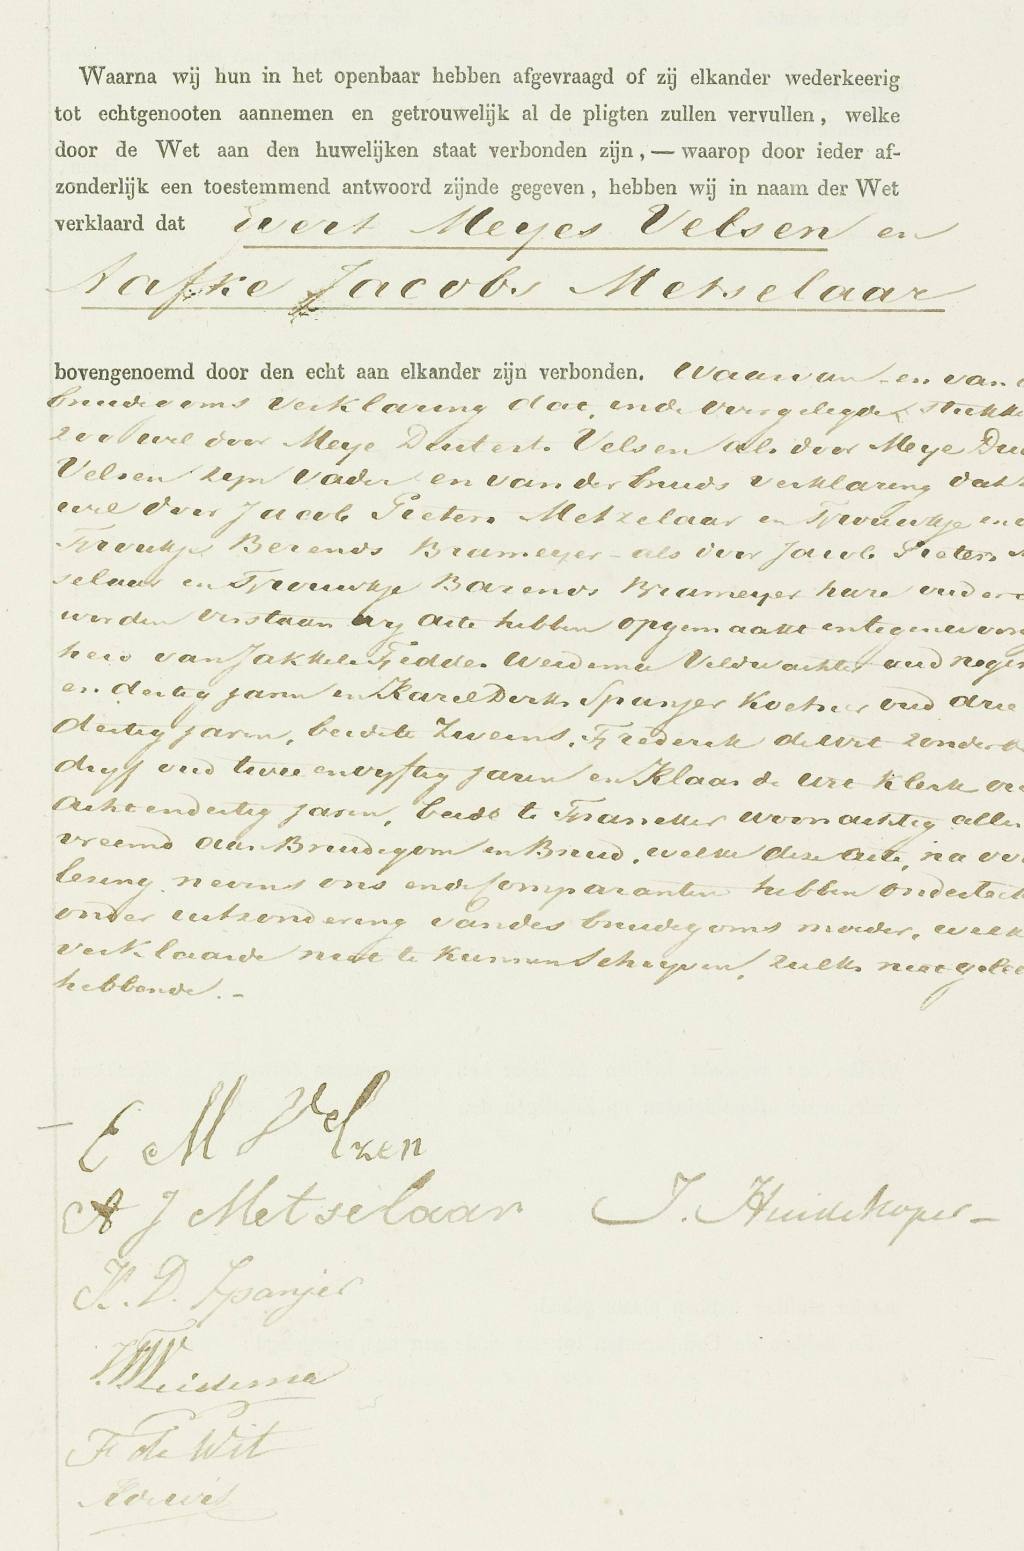 Waarna wij hun in het openbaar hebben afgevraagd of zij elkander wederkeerig
tot echtgenooten aannemen en getrouwelijk al de pligten zullen vervullen, welke
door de Wet aan den huwelijken staat verbonden zijn, — waarop door ieder af-
zonderlijk een toestemmend antwoord zijnde gegeven, hebben wij in naam der Wet
verklaard dat Evert Meyes Velsen en
Aafke Jacobs Metselaar
bovengenoemd door den echt aan elkander zijn verbonden. Waarvan en van d
bruidegoms verklaring dat, in de overgelegde stukke
zoo wel door Meye Velsen als door Meye
Velsen zijn vader en van der bruids verklaring dat
wel door Jacob Pieters Metzelaar en Trouwtje en
Troutje Berends Brameyer als door Jacob Pieters M
selaar en Trouwtje Barends Brameyer hare ouders
worden verstaan wij acte hebben opgemaakt in tegenwoor
heid van Jakkele Fedde Weidema Veldwachter oud negen
en dertig jaren en Karel Derk Spanjer Koetsier oud drie
dertig jaren, beide te Zweins, Frederik de Wit zonder be
dryf oud twee en vyftig jaren en Klaas de Wit Klerk ou
acht en dertig jaren, beide te Franeker woonachtig alle
vreemd aan Bruidegom en Bruid, welke deze acte, na voor
lezing nevens ons en de Comparanten hebben ondertek
onder uitzondering van des bruidegoms moeder, welk
verklaarde niet te kunnen schryven, zulks niet gelee
hebbende. -
E M Velzen
A J Metselaar J. Huidekoper
K. D. Spanjer
Weidema
F de Wit